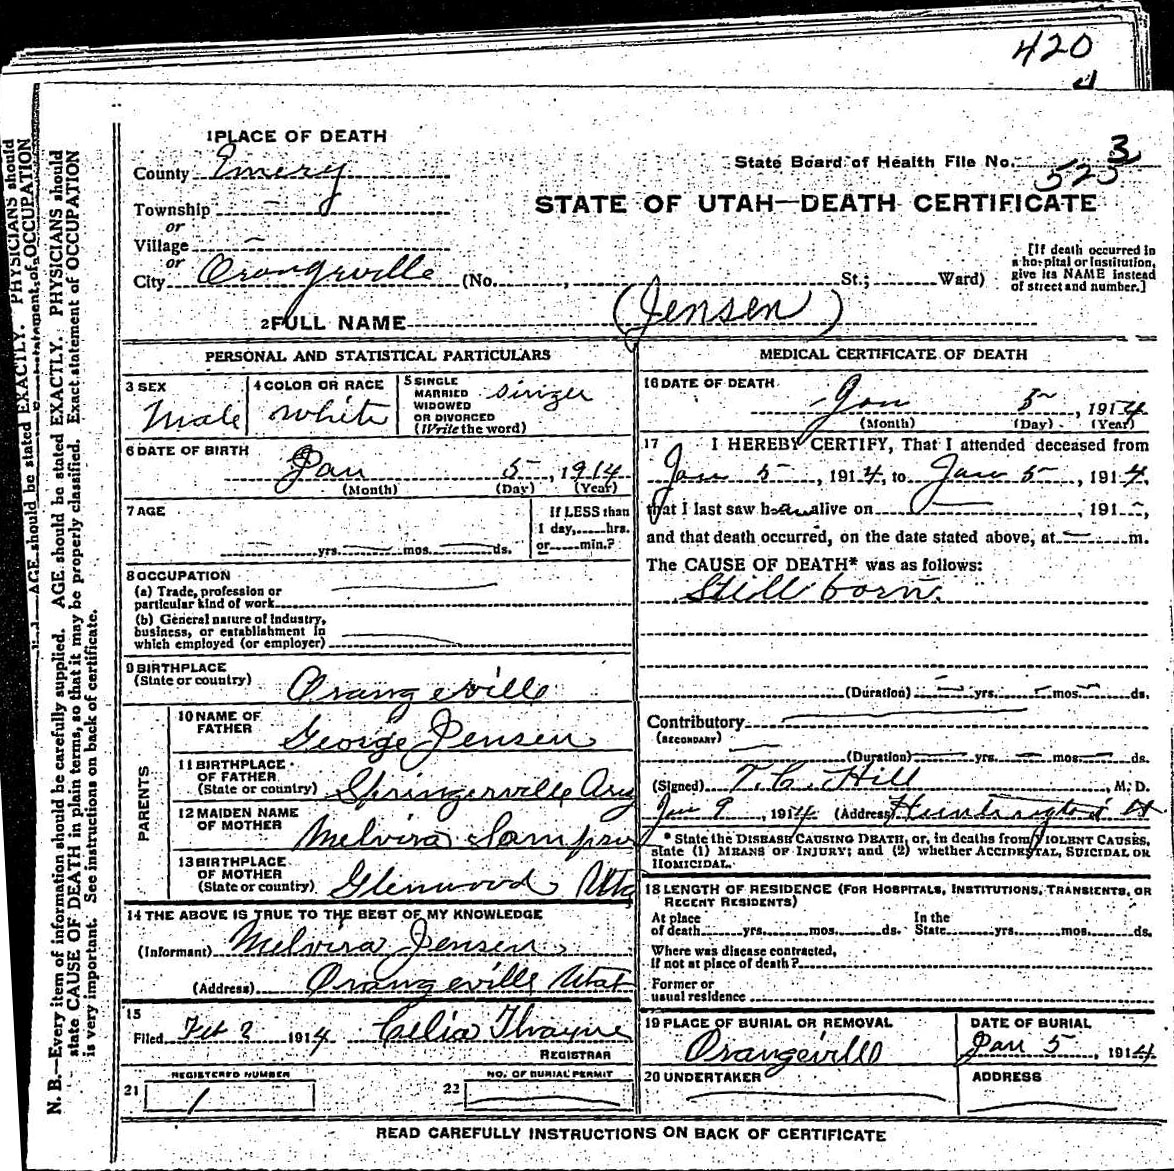 420
4
1 PLACE OF DEATH
County Emery
State Board of Health File No. 523
3
Township –
or
STATE OF UTAH—DEATH CERTIFICATE
Village –
or
City Orangeville (No. , St.; Ward)
[If death occurred in
a hospital or institution,
give its NAME instead
of street and number.]
2 FULL NAME (Jensen)
PERSONAL AND STATISTICAL PARTICULARS
3 SEX
Male
4 COLOR OR RACE
White
5 SINGLE
MARRIED
WIDOWED
OR DIVORCED
(Write the word)
6 DATE OF BIRTH
Jan 5, 1914
(Month) (Day) (Year)
7 AGE
yrs. mos. ds.
If LESS than
1 day, hrs.
or min.?
8 OCCUPATION
(a) Trade, profession or
particular kind of work
(b) General nature of industry,
business, or establishment in
which employed (or employer)
9 BIRTHPLACE
(State or country)
Orangeville
PARENTS
10 NAME OF
FATHER
George Jensen
11 BIRTHPLACE
OF FATHER
(State or country) Springerville Ariz
12 MAIDEN NAME
OF MOTHER
Melvira Sampson
13 BIRTHPLACE
OF MOTHER
(State or country) Glenwood Utah
14 THE ABOVE IS TRUE TO THE BEST OF MY KNOWLEDGE
(Informant) Melvira Jensen
(Address) Orangeville Utah
15
Filed Feb 2 1914 Celia Thayne
REGISTRAR
REGISTERED NUMBER
21 1
NO. OF BURIAL PERMIT
22
MEDICAL CERTIFICATE OF DEATH
16 DATE OF DEATH
Jan 5, 1914
(Month) (Day) (Year)
17 I HEREBY CERTIFY, That I attended deceased from
Jan 5, 1914, to Jan 5, 1914,
that I last saw h alive on , 191 ,
and that death occurred, on the date stated above, at m.
The CAUSE OF DEATH* was as follows:
Still born.
(Duration) yrs. mos. ds.
Contributory
(SECONDARY)
(Duration) yrs. mos. ds.
(Signed) T.C. Hill, M. D.
Jan 9, 1914 (Address) Huntington Ut
* State the DISEASE CAUSING DEATH, or, in deaths from VIOLENT CAUSES,
state (1) MEANS OF INJURY; and (2) whether ACCIDENTAL, SUICIDAL OR
HOMICIDAL.
18 LENGTH OF RESIDENCE (FOR HOSPITALS, INSTITUTIONS, TRANSIENTS, OR
RECENT RESIDENTS)
At place
of death yrs. mos. ds.
In the
State yrs. mos. ds.
Where was disease contracted,
if not at place of death?
Former or
usual residence
19 PLACE OF BURIAL OR REMOVAL
Orangeville
DATE OF BURIAL
Jan 5, 1914
20 UNDERTAKER
ADDRESS
READ CAREFULLY INSTRUCTIONS ON BACK OF CERTIFICATE
N. B.—Every item of information should be carefully supplied. AGE should be stated EXACTLY. PHYSICIANS should
state CAUSE OF DEATH in plain terms, so that it may be properly classified. Exact statement of OCCUPATION
is very important. See instructions on back of certificate.
AGE should be stated EXACTLY. PHYSICIANS should
statement of OCCUPATION